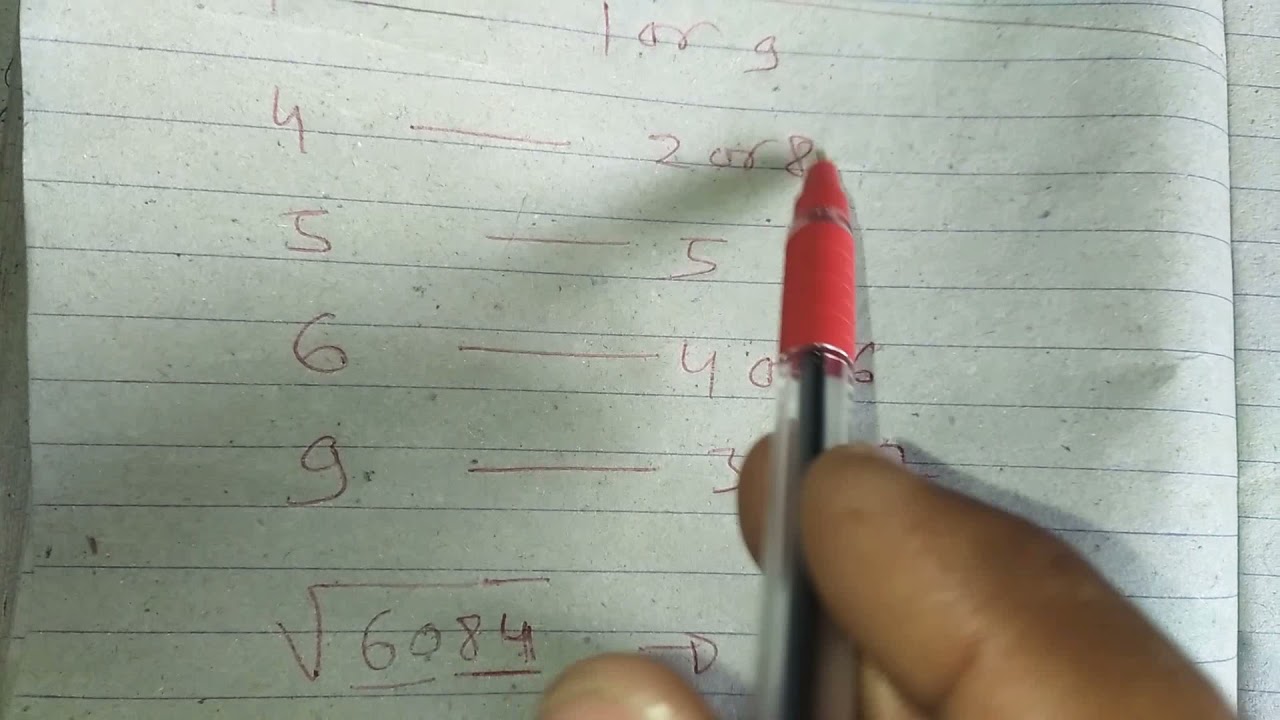 1 or 9
4 — 2 or 8
5 — 5
6 — 4 o 6
9 — 3
√6084 →